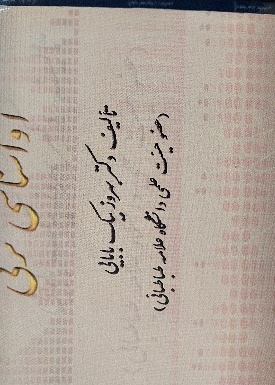 آواشناسی عربی
تألیف دکتر بهروز نیک بابایی
(عضو هیئت علمی دانشگاه علامه طباطبائی)